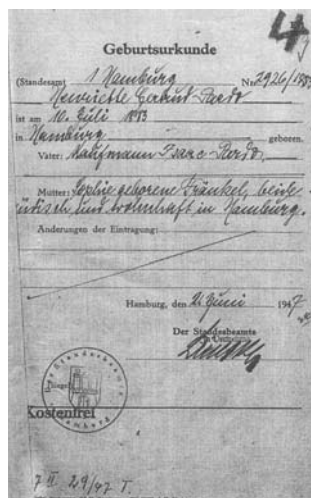 4
Geburtsurkunde
(Standesamt 1 Hamburg Nr. 2926/1883
Henriette Gertrud Pardo
ist am 10. Juli 1883
in Hamburg geboren.
Vater: Kaufmann Isaac Pardo,
Mutter: Sophie geborene Fränkel, beide
jüdisch und wohnhaft in Hamburg.
Änderungen der Eintragung:
Hamburg, den 2. Juni 1947
Der Standesbeamte
Siegel
Kostenfrei